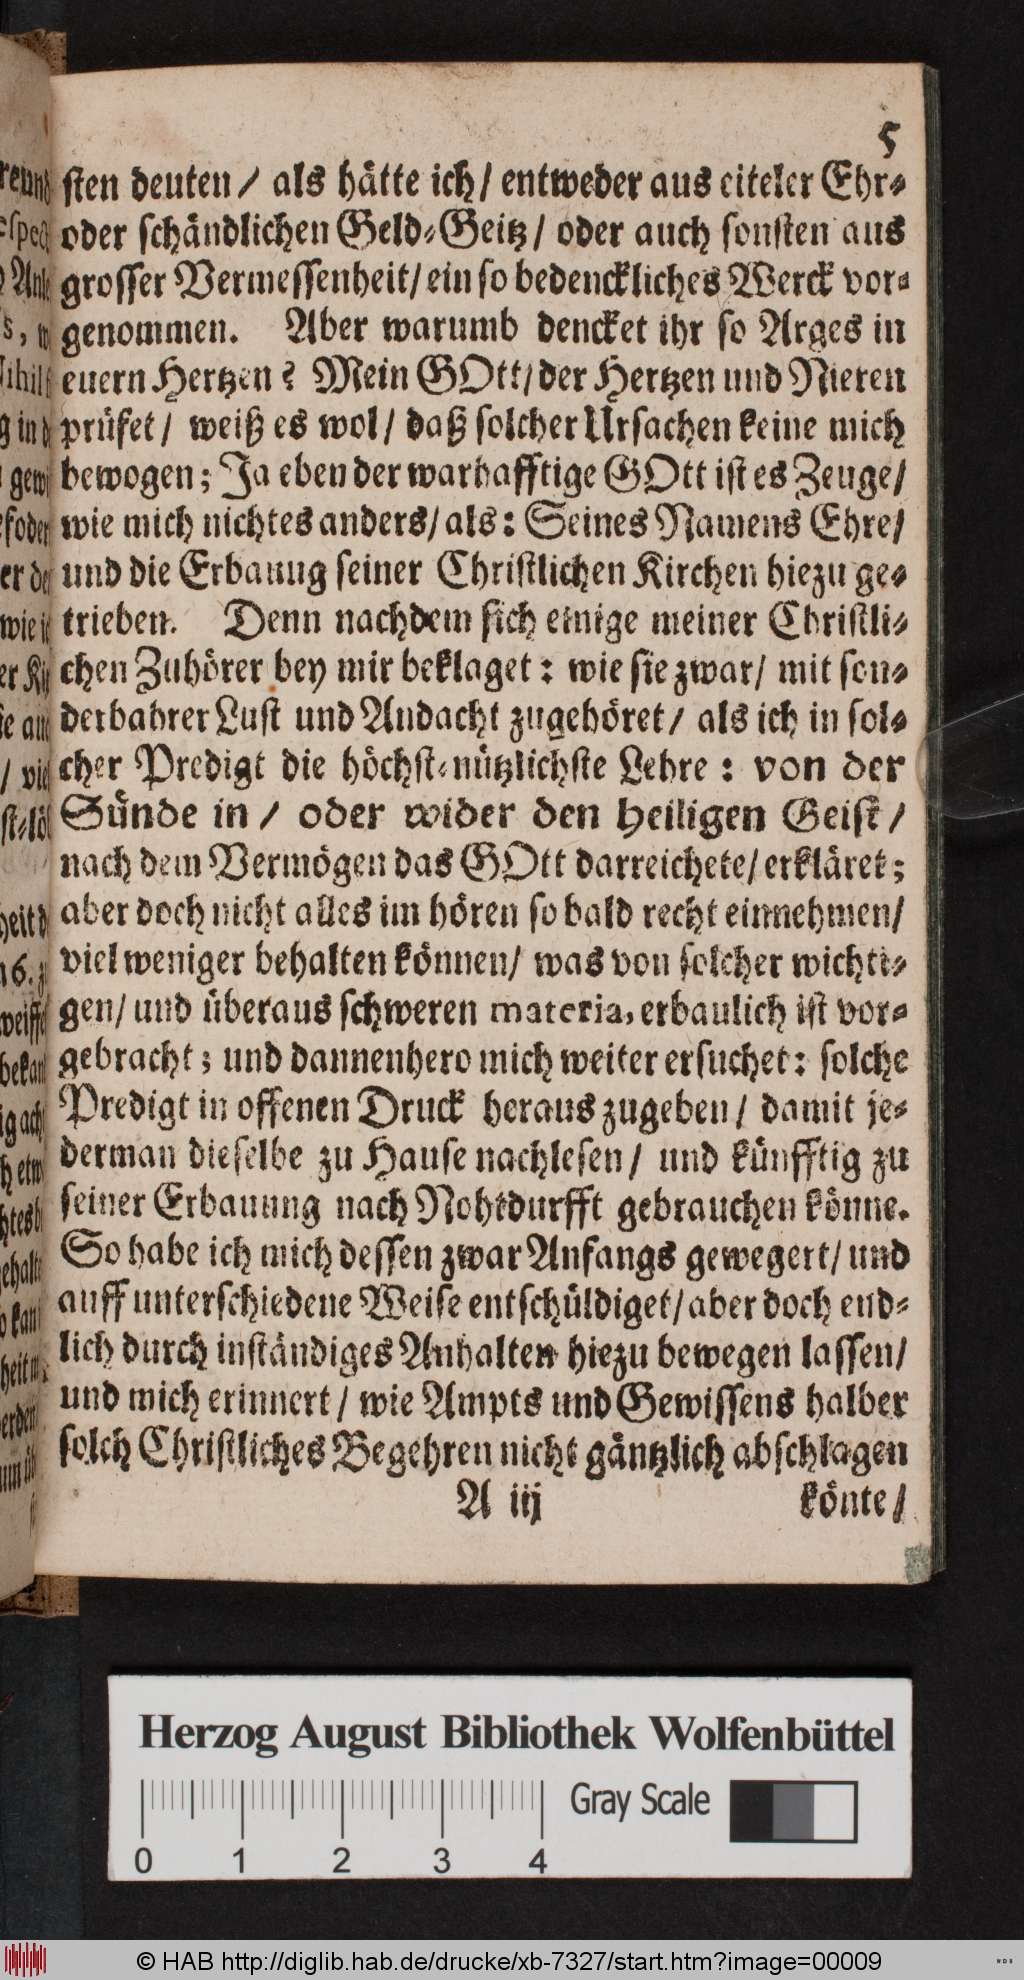 5
sten deuten / als hätte ich / entweder aus eiteler Ehr-
oder schändlichen Geld-Geitz / oder auch sonsten aus
grosser Vermessenheit / ein so bedenckliches Werck vor-
genommen. Aber warumb dencket ihr so Arges in
euern Hertzen? Mein GOtt / der Hertzen und Nieren
prüfet / weiß es wol / daß solcher Ursachen keine mich
bewogen; Ja eben der warhafftige GOtt ist es Zeuge /
wie mich nichtes anders / als: Seines Namens Ehre /
und die Erbauug seiner Christlichen Kirchen hiezu ge-
trieben. Denn nachdem sich einige meiner Christli-
chen Zuhörer bey mir beklaget: wie sie zwar / mit son-
derbahrer Lust und Andacht zugehöret / als ich in sol-
cher Predigt die höchst-nützlichste Lehre: von der
Sünde in / oder wider den Heiligen Geist /
nach dem Vermögen das GOtt darreichete / erkläret;
aber doch nicht alles im hören so bald recht einnehmen /
viel weniger behalten können / was von solcher wichti-
gen / und überaus schweren materia, erbaulich ist vor-
gebracht; und dannenhero mich weiter ersuchet: solche
Predigt in offenen Druck heraus zugeben / damit je-
derman dieselbe zu Hause nachlesen / und künfftig zu
seiner Erbauung nach Nohtdurfft gebrauchen könne.
So habe ich mich dessen zwar Anfangs gewegert / und
auff unterschiedene Weise entschüldiget / aber doch end-
lich durch inständiges Anhalten hiezu bewegen lassen /
und mich erinnert / wie Ampts und Gewissens halber
solch Christliches Begehren nicht gäntzlich abschlagen
A iij könte /
Herzog August Bibliothek Wolfenbüttel
Gray Scale
0 1 2 3 4
© HAB http://diglib.hab.de/drucke/xb-7327/start.htm?image=00009